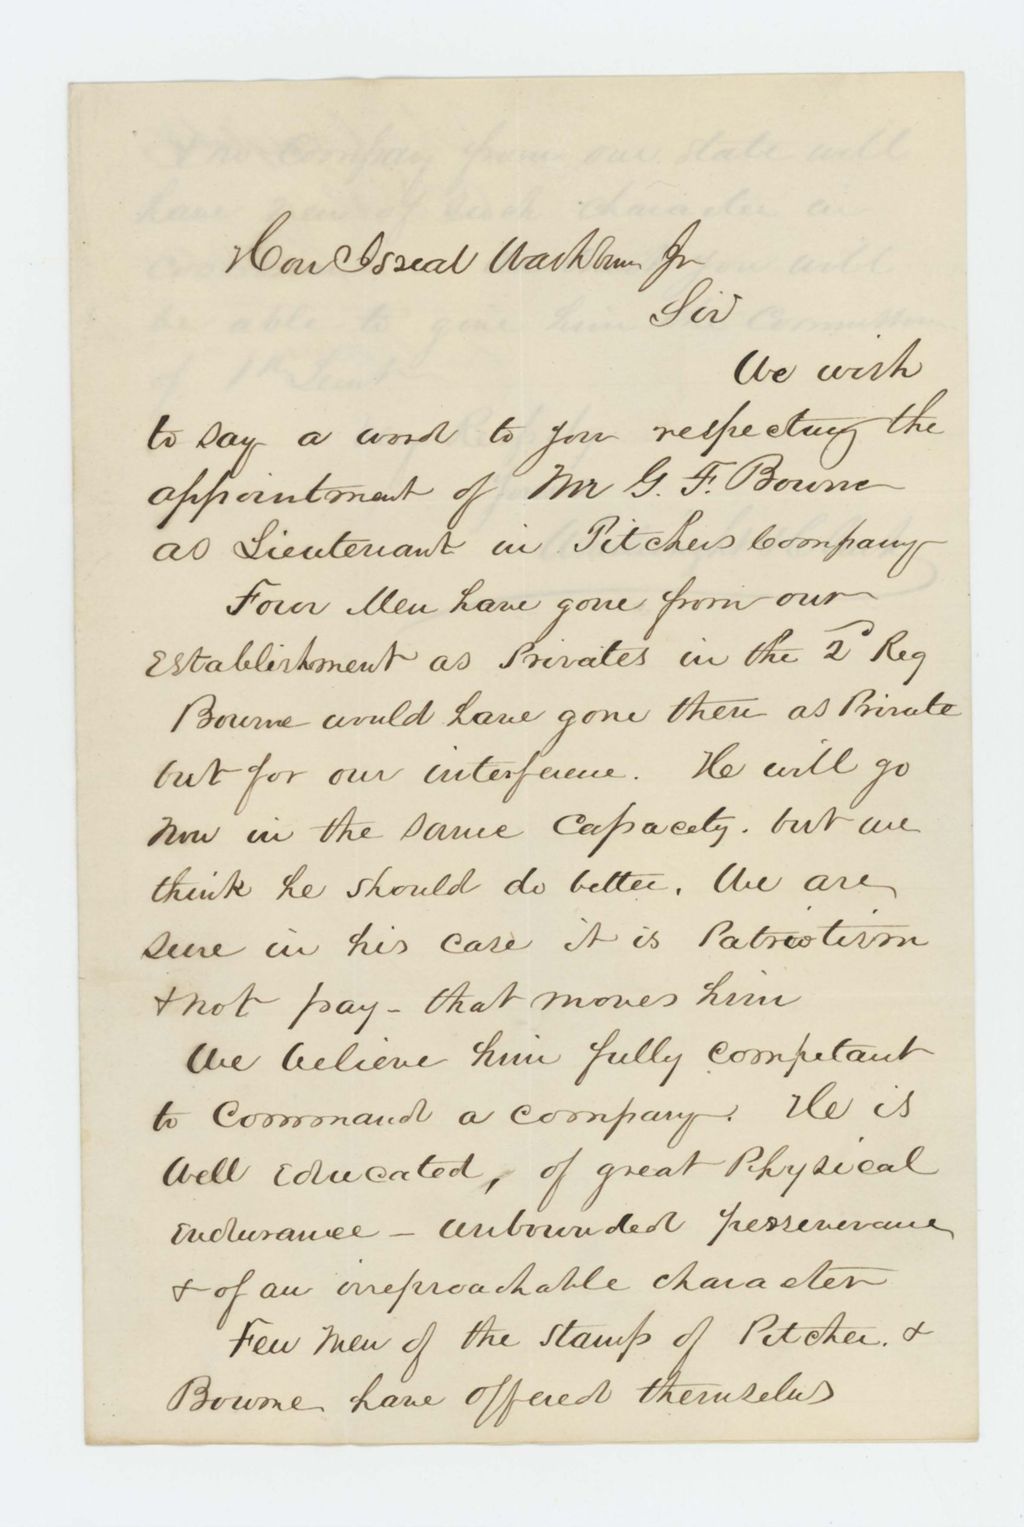 Hon Isreal Washburn Jr
Sir
We wish
to say a word to you respecting the
appointment of Mr G. F. Bourne
as Lieutenant in Pitchers Company
Four Men have gone from our
Establishment as Privates in the 2d Reg
Bourne would have gone there as Private
but for our interference. He will go
now in the same Capacety. but we
think he should do better. We are
sure in his case it is Patriotism
& not pay - that moves him
We believe him fully competant
to Command a company. He is
Well Educated, of great Physical
Endurance - Unbounded perseverance
& of an irreproachable character
Few Men of the Stamp of Pitcher. &
Bourne have offered themselves